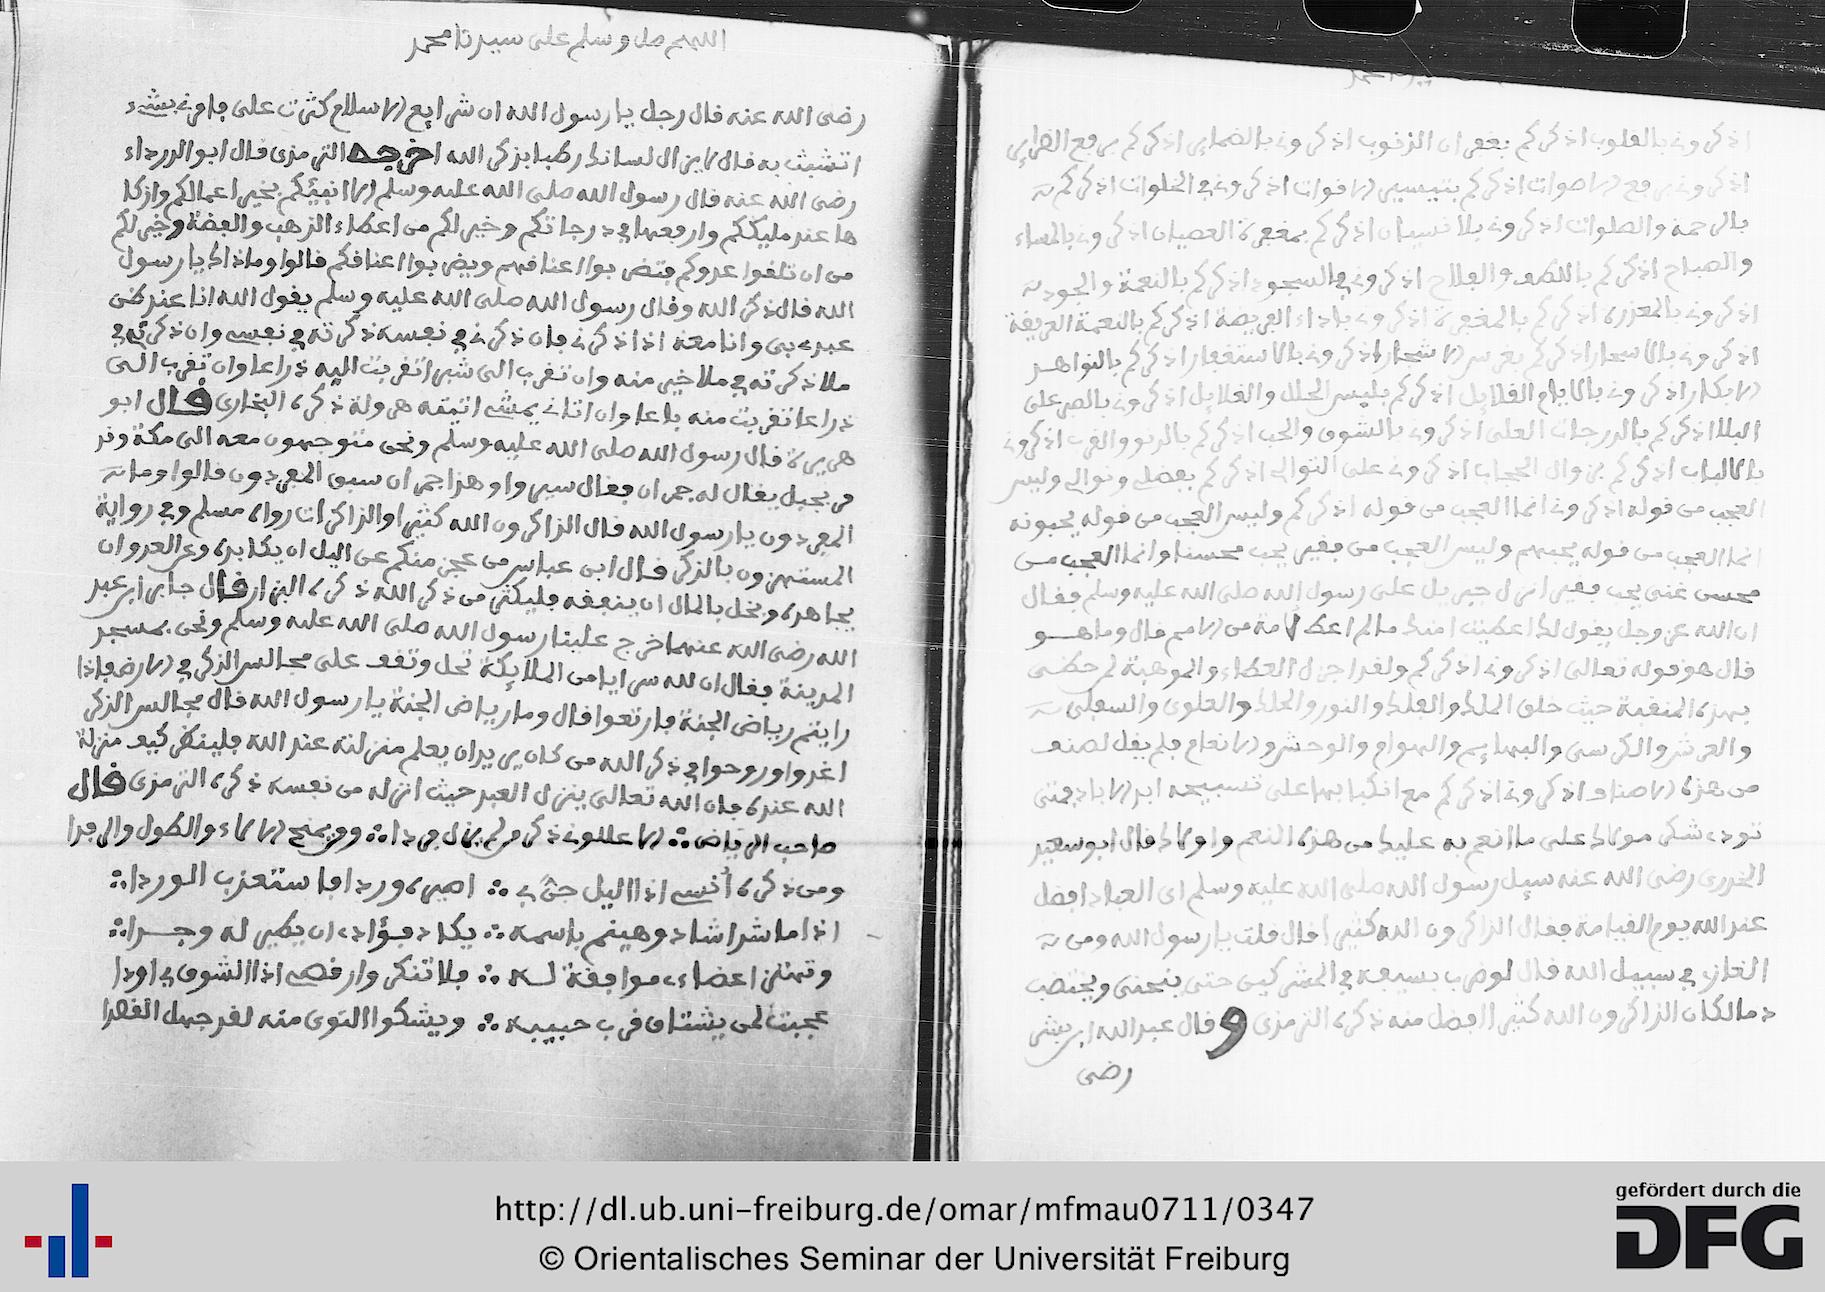 اذكروني بالقلوب اذكركم بغفران الذنوب اذكروني بالضماير اذكركم برفع
اذكروني برفع الاصوات اذكركم بتيسير الاقوات اذكروني في الخلوات اذكركم
بالرحمة والصلوات اذكروني بلا نسيان اذكركم بمغفرة العصيان اذكروني بالمساء
والصباح اذكركم باللطف والفلاح اذكروني في السجود اذكركم بالنعمة والجود
اذكروني بالمعذرة اذكركم بالمغفرة اذكروني باداء الفريضة اذكركم بالنعمة
اذكروني بالاسحار اذكركم بغرس الاشجار اذكروني بالاستغفار اذكركم
الابكار اذكروني بالايام القلايل اذكركم بلبس الحلل والغلايل اذكروني بالصبر على
البلا اذكركم بالدرجات العلى اذكروني بالشوق والحب اذكركم بالدنو والقرب اذكروني
اذكركم بزوال الحجاب اذكروني على التوالي اذكركم بفضلي ونوالي وليس
العجب من قوله اذكروني انما العجب من قوله اذكركم وليس العجب من قوله يحبونه
انما العجب من قوله يحبهم وليس العجب من فقير يحب محسنا وانما العجب من
محسن غني يحب فقيرا نزل جبريل على رسول الله صلى الله عليه وسلم فقال
ان الله عز وجل يقول لك اعطيت امتك ما لم اعط امة من الامم قال وما هو
قال هو قوله تعالى اذكروني اذكركم ولقد اجزل العطاء والموهبة لم حظى
بهذه المنقبة حيث خلق الملك والفلك والنور والحلك والعلوي والسفلي
والعرش والكرسي والبهايم والهوام والوحش والانعام فلم يقل لصنف
من هذه الاصناف اذكروني اذكركم مع انكبابها على تسبيحه ابد الاباد فمتى
تودي شكر مولاك على ما انعم به عليك من هذه النعم واولاك قال ابو سعيد
الخدري رضى الله عنه سيل رسول الله صلى الله عليه وسلم اي العباد افضل
عند الله يوم القيامة فقال الذاكرون الله كثيرا قال قلت يا رسول الله ومن
الغازي في سبيل الله قال لو ضرب بسيفه في المشركين حتى ينحني ويختضب
دما لكان الذاكرون الله كثيرا افضل منه ذكره الترمذي وقال عبد الله ابن بشر
رضى
اللهم صل وسلم على سيدنا محمد
رضى الله عنه قال رجل يا رسول الله ان شرايع الاسلام كثرت علي فامرني بشيء
اتشبث به قال لا يزال لسانك رطبا بذكر الله اخرجه الترمذي قال ابو الدرداء
رضى الله عنه قال رسول الله صلى الله عليه وسلم الا انبيكم بخير اعمالكم وازكا
ها عند مليككم وارفعها في درجاتكم وخير لكم من اعطاء الذهب والفضة وخير لكم
من ان تلقوا عدوكم فتضربوا اعناقهم ويضربوا اعناقكم قالوا وما ذاك يا رسول
الله قال ذكر الله وقال رسول الله صلى الله عليه وسلم يقول الله انا عند ظن
عبدي بي وانا معه اذا ذكرني فان ذكرني في نفسه ذكرته في نفسي وان ذكرني في
ملا ذكرته في ملا خير منه وان تقرب الي شبرا تقربت اليه ذراعا وان تقرب الي
ذراعا تقربت منه باعا وان اتاني يمشي اتيته هرولة ذكره البخاري قال ابو
هريرة قال رسول الله صلى الله عليه وسلم ونحن متوجهون معه الى مكة وقد
مر بجبل يقال له جمدان فقال سيروا وهذا جمدان سبق المفردون قالوا وما
المفردون يا رسول الله قال الذاكرون الله كثيرا والذاكرات رواه مسلم وفي رواية
المستهزون بالذكر قال ابن عباس من عجز منكم عن اليل ان يكابده وعن العدو ان
يجاهده وبخل بالمال ان ينفقه فليكثر من ذكر الله ذكره البزار قال جابر ابن عبد
الله رضى الله عنهما خرج علينا رسول الله صلى الله عليه وسلم ونحن بمسجد
المدينة فقال ان لله سرايا من الملايكة تحل وتقف على مجالس الذكر في الارض فاذا
رايتم رياض الجنة فارتعوا قال وما رياض الجنة يا رسول الله قال مجالس الذكر
اغدوا وروحوا في ذكر الله من كان يريد ان يعلم منزلته عند الله فلينظر كيف منزلة
الله عنده فان الله تعالى ينزل العبد حيث انزله من نفسه ذكره الترمذي قال
صاحب الرياض ∴ الا عللوني ذكر من لم يزل فردا ∴
ومن ذكره أنسي اذا اليل ∴ وردا فاستعذب الوردا ∴
اذا ما شدا شاد وهينم باسمه ∴ يكاد فؤادي ان يطير له وجدا ∴
وتهتز اعضاءي موافقة له ∴ فلا تنكروا رقصي اذا الشوق بي اودا
عجبت لمن يشتاق قرب حبيبه ∴ ويشكوا النوى منه لقد جهل القصدا
http://dl.ub.uni-freiburg.de/omar/mfmau0711/0347
© Orientalisches Seminar der Universität Freiburg
gefördert durch die
DFG